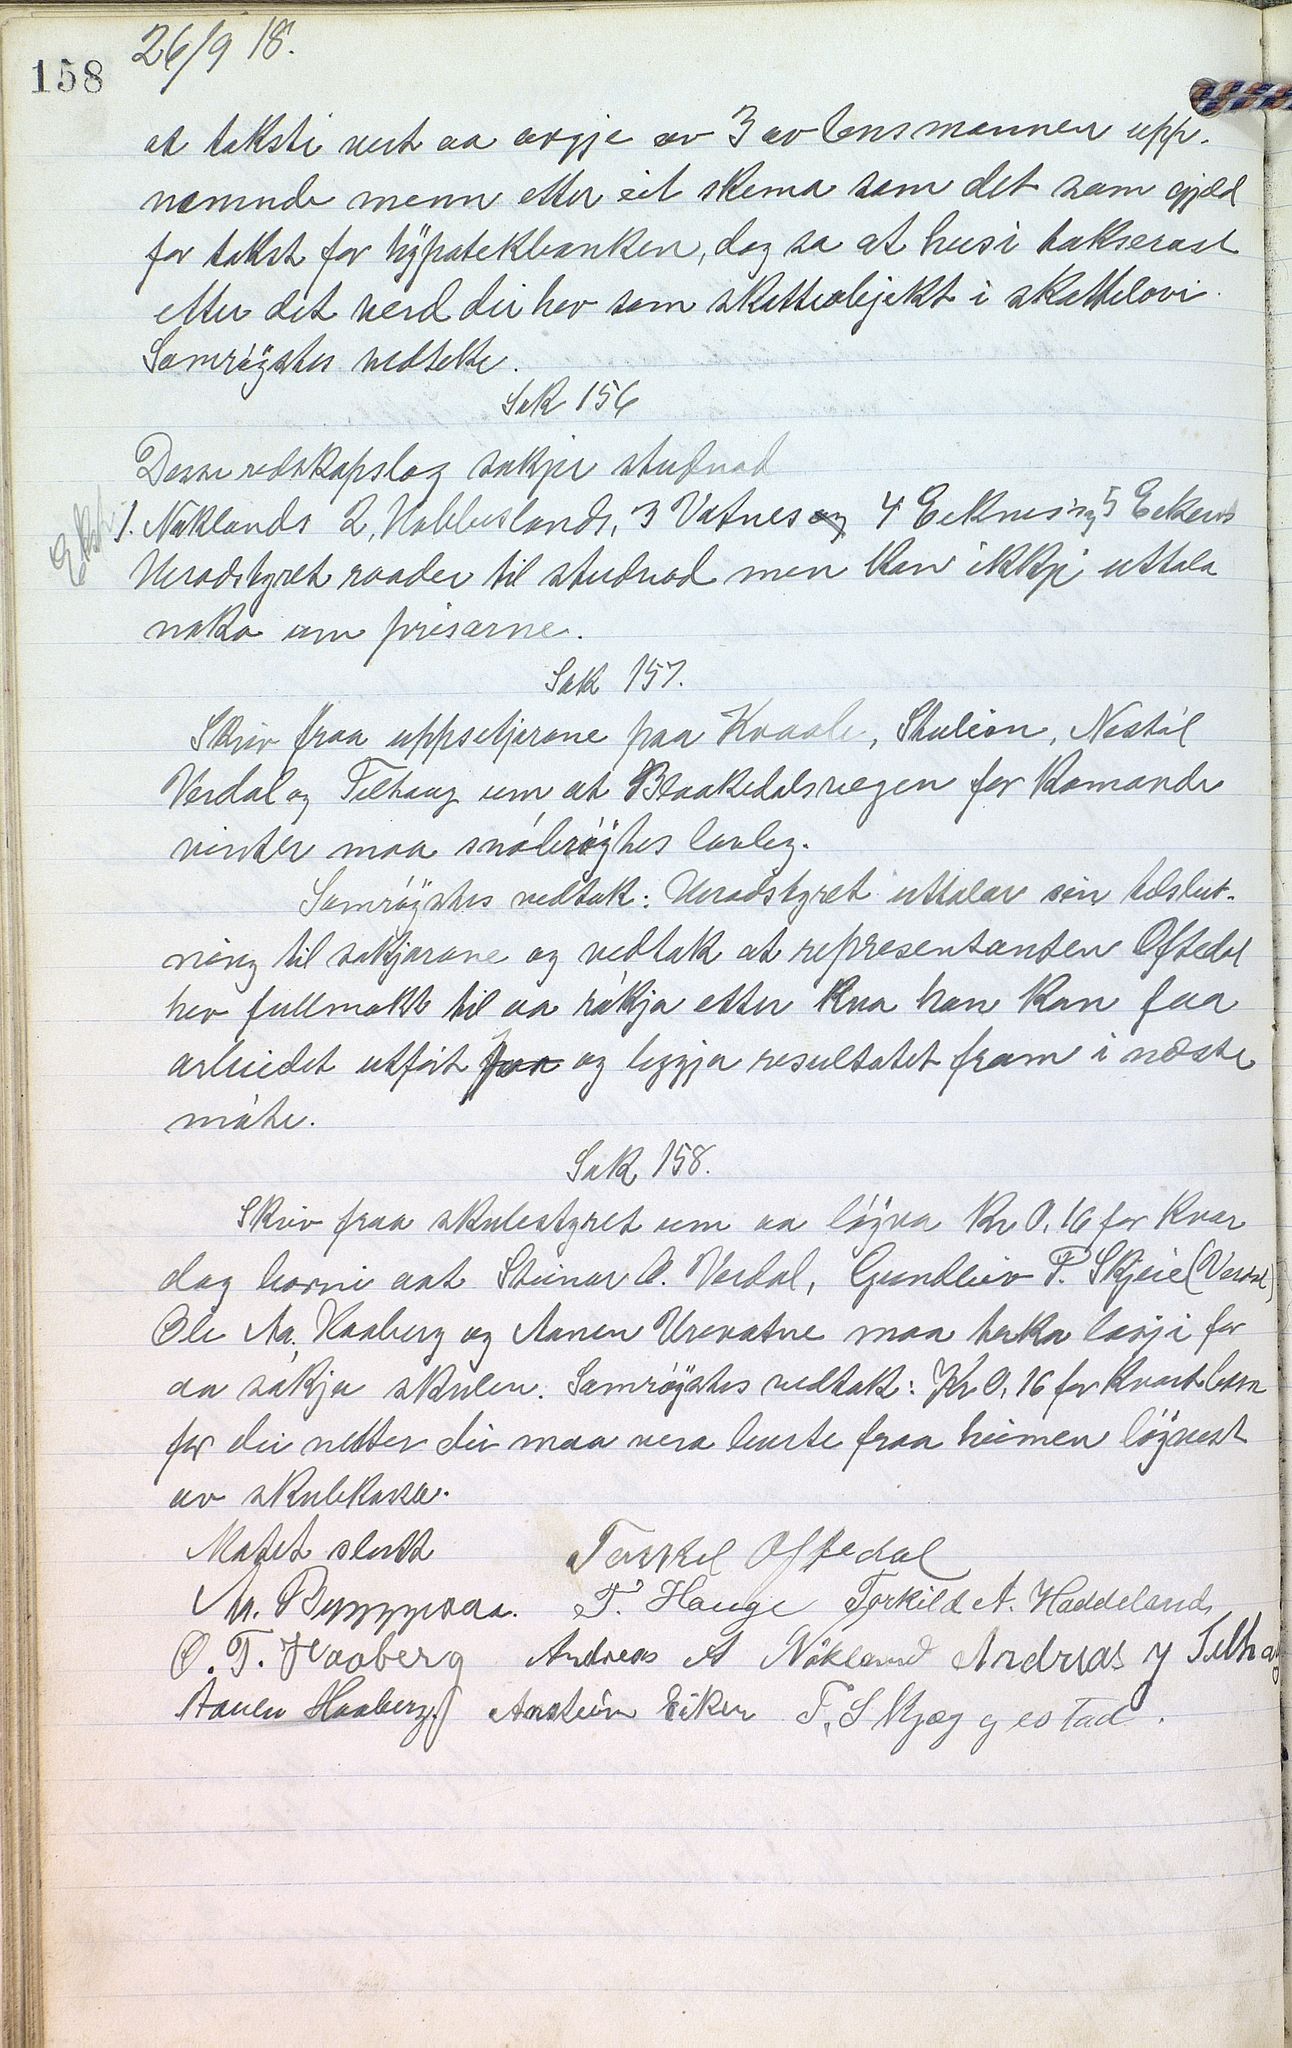 158
26/9 18.
at taksti vert aa avgje av 3 av lensmannen upp-
nemnde menn etter eit skema som det som gjeld
for takst for hypotekbanken, dog so at husi takserast
etter det verd dei hev som skatteobjekt i skattelovi.
Samrøystes vedteke.
Sak 156
Desse redskapslag søkjer studnad
Ekst.
1. Nøklands 2, Hobbeslands, 3 Vatnes og 4 Eeknes og 5 Eekens
Heradstyret raader til studnad men kan ikkje uttala
noko um prisarne.
Sak 157.
Skriv fraa uppsitjarane paa Kvaale, Stulien, Nestøl
Verdal og Telhaug um at Blaakedalsvegen for komande
vinter maa snøbrøytes lovleg.
Samrøystes vedtak: Heradstyret uttalar sin tilslut-
ning til søkjarane og vedtak at representanten Oftedal
hev fullmakt til aa røkja etter kva han kan faa
arbeidet utført faa og leggja resultatet fram i næste
møte.
Sak 158.
Skriv fraa skulestyret um aa løyva Kr 0,16 for kvar
dag borni aat Steinar O. Verdal, Gundleiv T. Skjeie (Verdal)
Ole Aa. Haaberg og Aanen Urevatne maa bruka losji for
aa søkja skulen. Samrøystes vedtak: Kr 0,16 for kvart born
for dei netter dei maa vera burte fraa heimen løyvest
av skulekassa.
Møtet slutt
Torkel Oftedal
T. Hauge Torkild A. Haddeland
O. T. Haaberg Andreas A Nökland Andreas J Telhaug
Aanen Haaberg Anstein Eiken T. Skjeggestad.